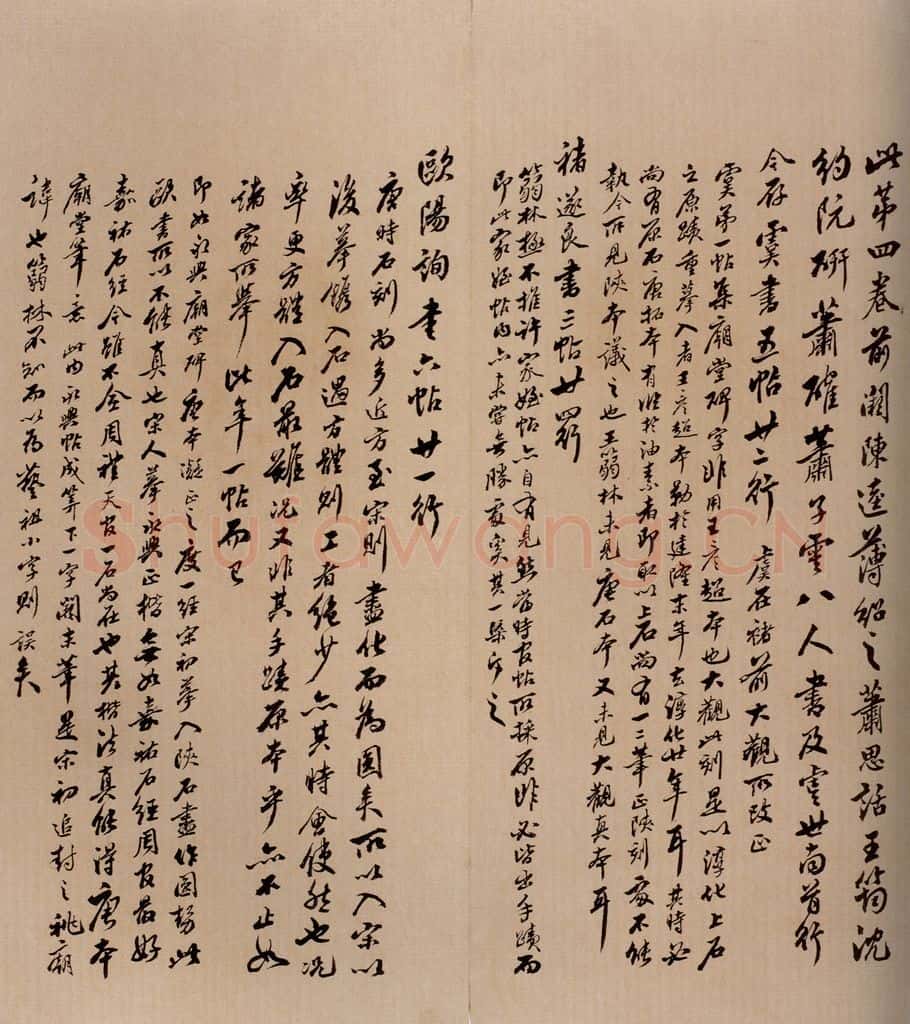 此第四卷前闕陳逵薄紹之蕭思話王筠沈
約阮研蕭確蕭子雲八人書及虞世南首行
令存虞書五帖廿二行 虞在褚前大觀所改正
虞弟一帖集廟堂碑字非用王彥超本也大觀此刻是以淳化上石
之原蹟重摹入者王彥超本勒於建隆末年去淳化廿年耳其時必
尚有原石唐拓本有濰於油素者即取以上石尚有一二筆正陝刻處不能
執今所見陝本議之也王蒻林未見唐石本又未見大觀真本耳
褚遂良書三帖廿四行
蒻林極不推許家姪帖亦自有見然當時官帖所採原非必皆出手蹟而
即此家姪帖內亦未嘗無勝處實其一槩斥之
歐陽詢書六帖廿一行
唐時石刻尚多近方至宋則盡化而為圓矣所以入宋以
後摹鐫入石遇方體則工者絕少亦其時會使然也況
率更方體入石最難況又非其手蹟原本乎亦不止如
諸家所舉此年一帖而已
即如永興廟堂碑唐本凝正之度一經宋初摹入陝石盡作圓勢此
歐書所以不能真也宋人摹永興正楷無如嘉祐石經周官最好
嘉祐石經今雖不全周禮天官一石尚在也其楷法真能得唐本
廟堂筆意 此內永興帖成筭下一字闕末筆是宋初追封之祧廟
諱也蒻林不知而以為藝祖小字則誤矣
shufawang.CN